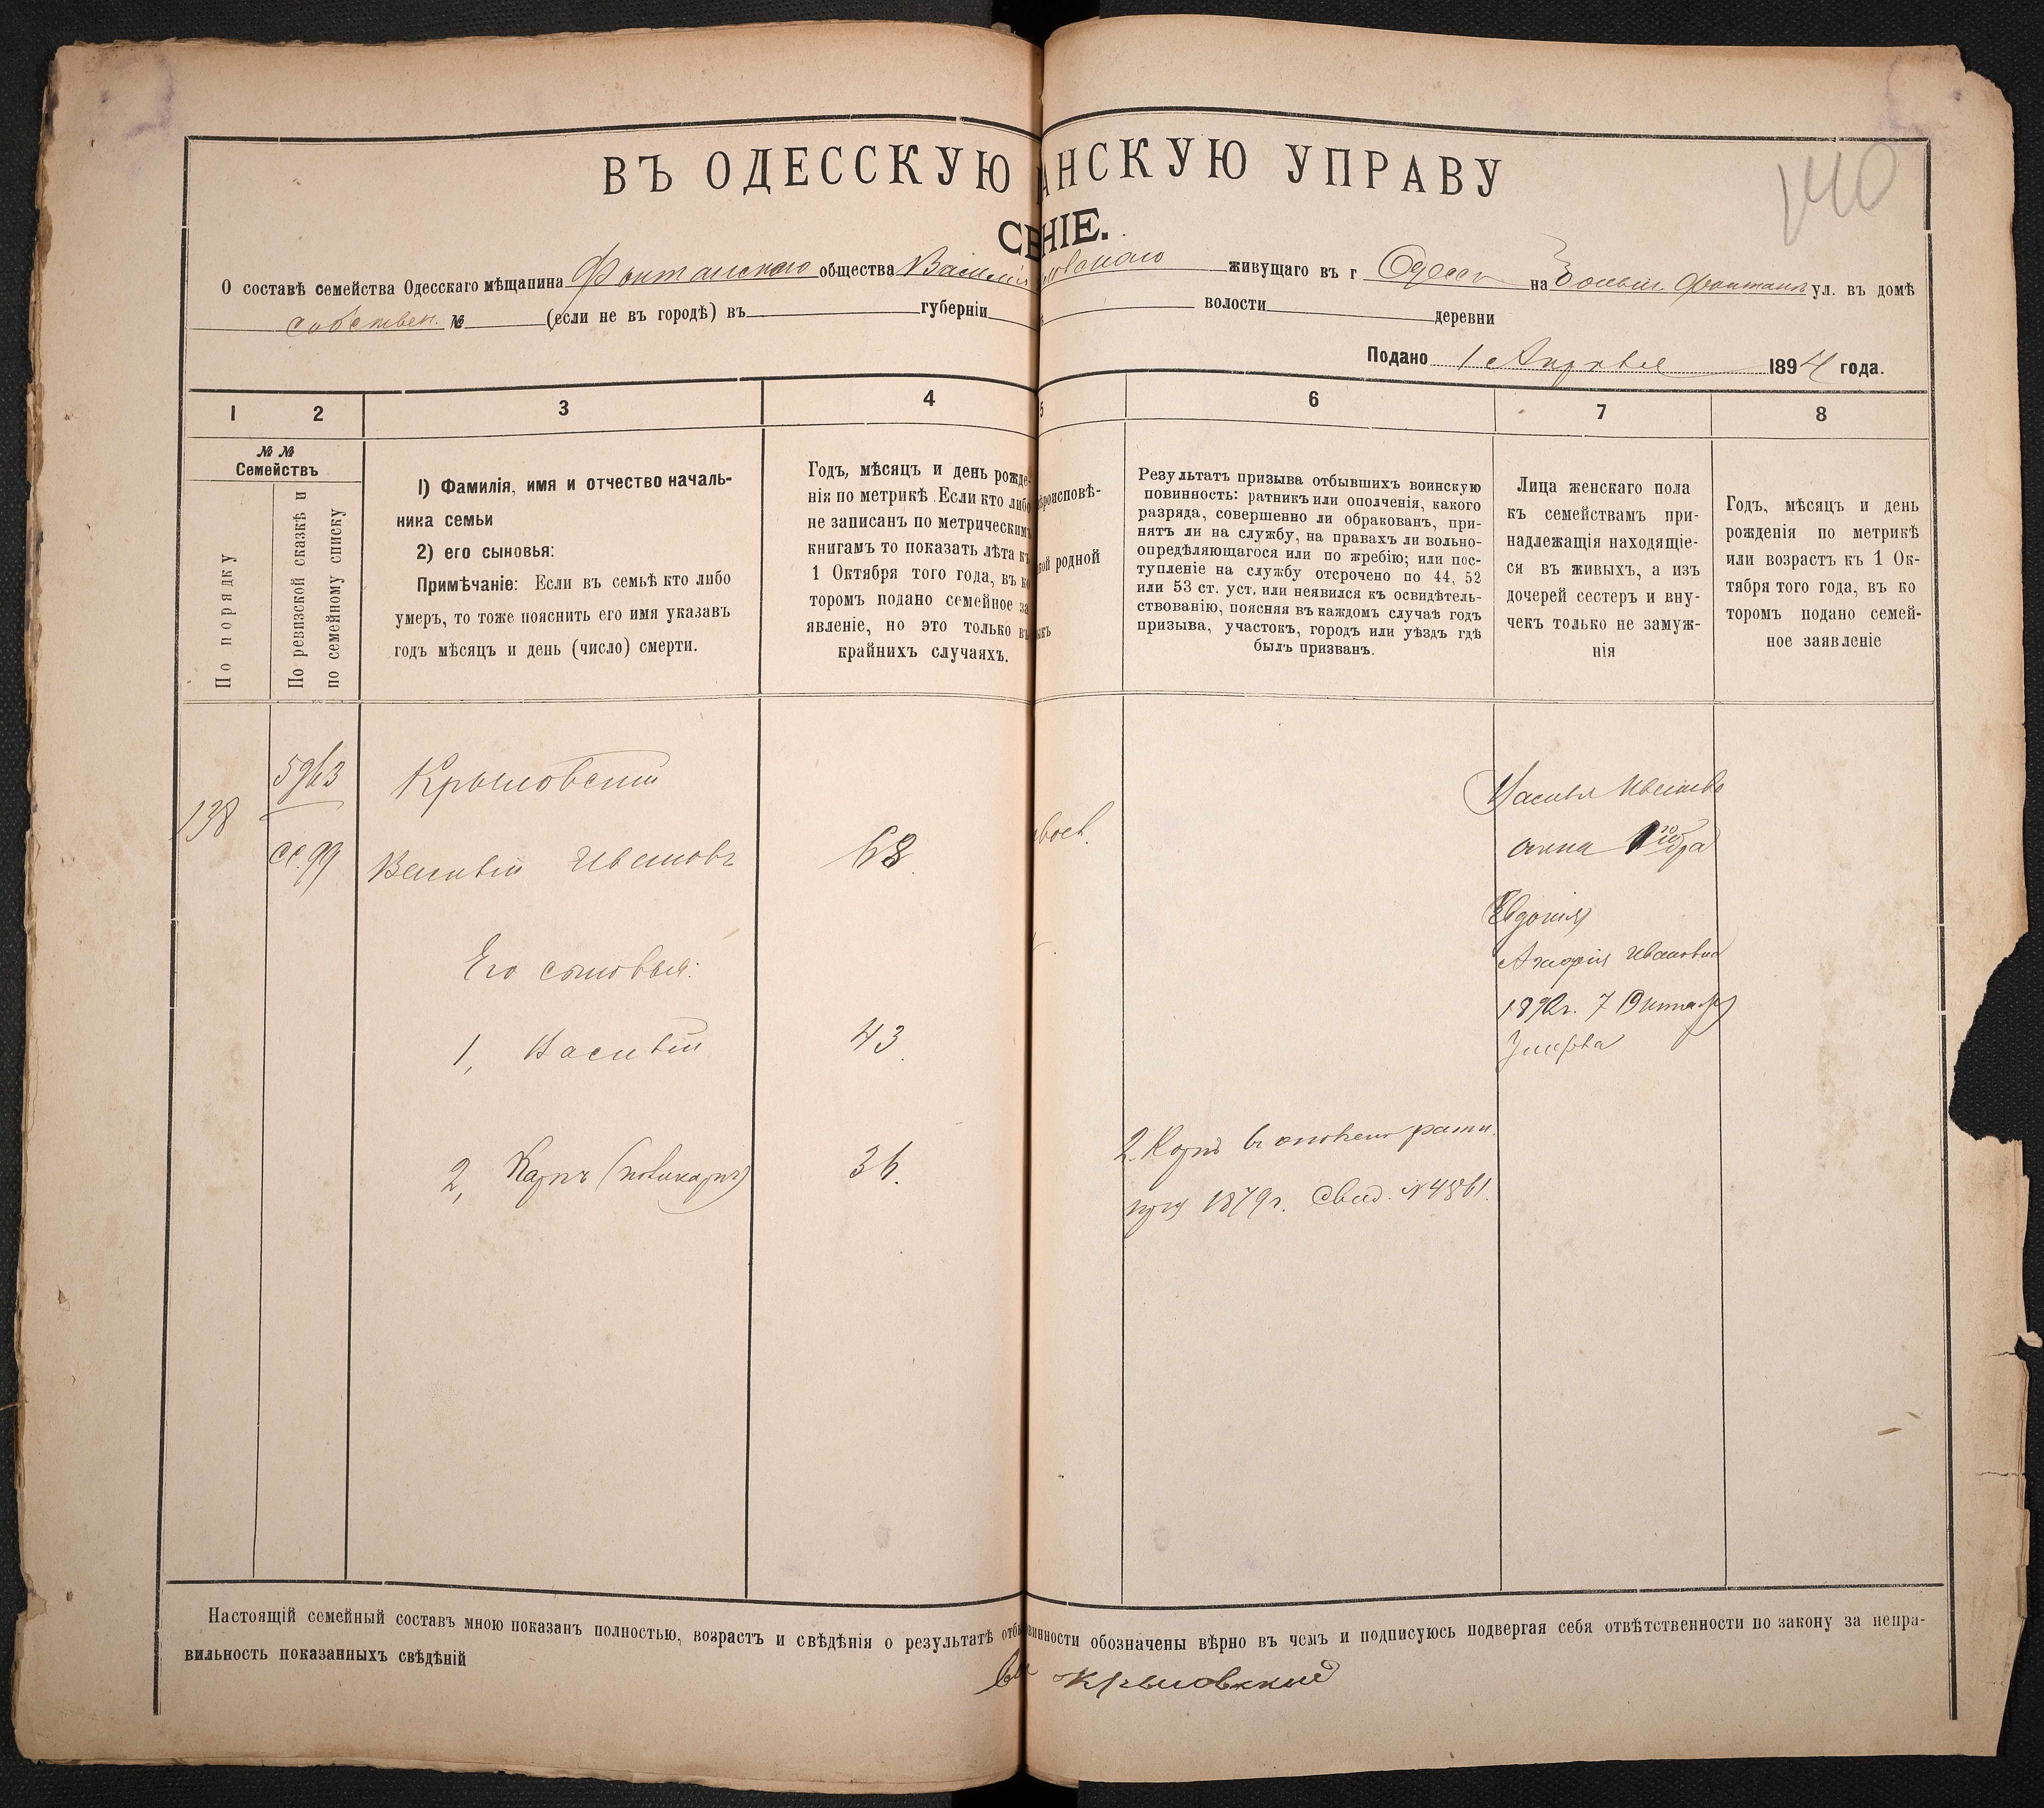 140
ВЪ ОДЕССКУЮ АНСКУЮ УПРАВУ
СЕ НІЕ.
О составѣ семейства Одесскаго мѣщанина Фонтанскаго общества Василія ловскаго живущаго въ г Одессѣ на Больш. Фонтанѣ ул. въ домѣ
собствен. № (если не въ городѣ) въ губерніи волости деревни
Подано 1 Апрѣля 1894 года.
1 2 3 4 5 6 7 8
№ № Семействъ
По порядку
По ревизской сказкѣ и
по семейному списку
1) Фамилія, имя и отчество началь-
ника семьи
2) его сыновья:
Примѣчаніе: Если въ семьѣ кто либо
умеръ, то тоже пояснить его имя указавъ
годъ мѣсяцъ и день (число) смерти.
Годъ, мѣсяцъ и день рожде-
нія по метрикѣ. Если кто либо
не записанъ по метрическимъ
книгамъ то показать лѣта къ
1 Октября того года, въ ко
торомъ подано семейное за
явленіе, но это только въ
крайнихъ случаяхъ.
ѣроисповѣ-
кой родной
ыкъ
Результатъ призыва отбывшихъ воинскую
повинность: ратникъ или ополченія, какого
разряда, совершенно ли обракованъ, при-
нятъ ли на службу, на правахъ ли вольно-
опредѣляющагося или по жребію; или пос-
тупленіе на службу отсрочено по 44, 52
или 53 ст. уст. или неявился къ освидѣтель-
ствованію, поясняя въ каждомъ случаѣ годъ
призыва, участокъ, городъ или уѣздъ гдѣ
былъ призванъ.
Лица женскаго пола
къ семействамъ при-
надлежащія находящіе-
ся въ живыхъ, а изъ
дочерей сестеръ и вну-
чекъ только не замуж-
нія
Годъ, мѣсяцъ и день
рожденія по метрикѣ
или возрастъ къ 1 Ок-
тября того года, въ ко
торомъ подано семей-
ное заявленіе
138
5963
сс. 99
Крыловскій
Василій Ивановъ 68
авосл.
Его сыновья:
1, Василій 43
2, Карпъ (поликарпъ) 36.
2. Карпъ въ ополчен ратн.
1879 г. Свид. № 4861.
Василя Иванова
жена
Евдокія
Ивановна
1892 г. 7 Октября
Умерла
Настоящій семейный составъ мною показанъ полностью, возрастъ и свѣдѣнія о результатѣ отбы винности обозначены вѣрно въ чемъ и подписуюсь подвергая себя отвѣтственности по закону за непра-
вильность показанныхъ свѣдѣній
Крыловский